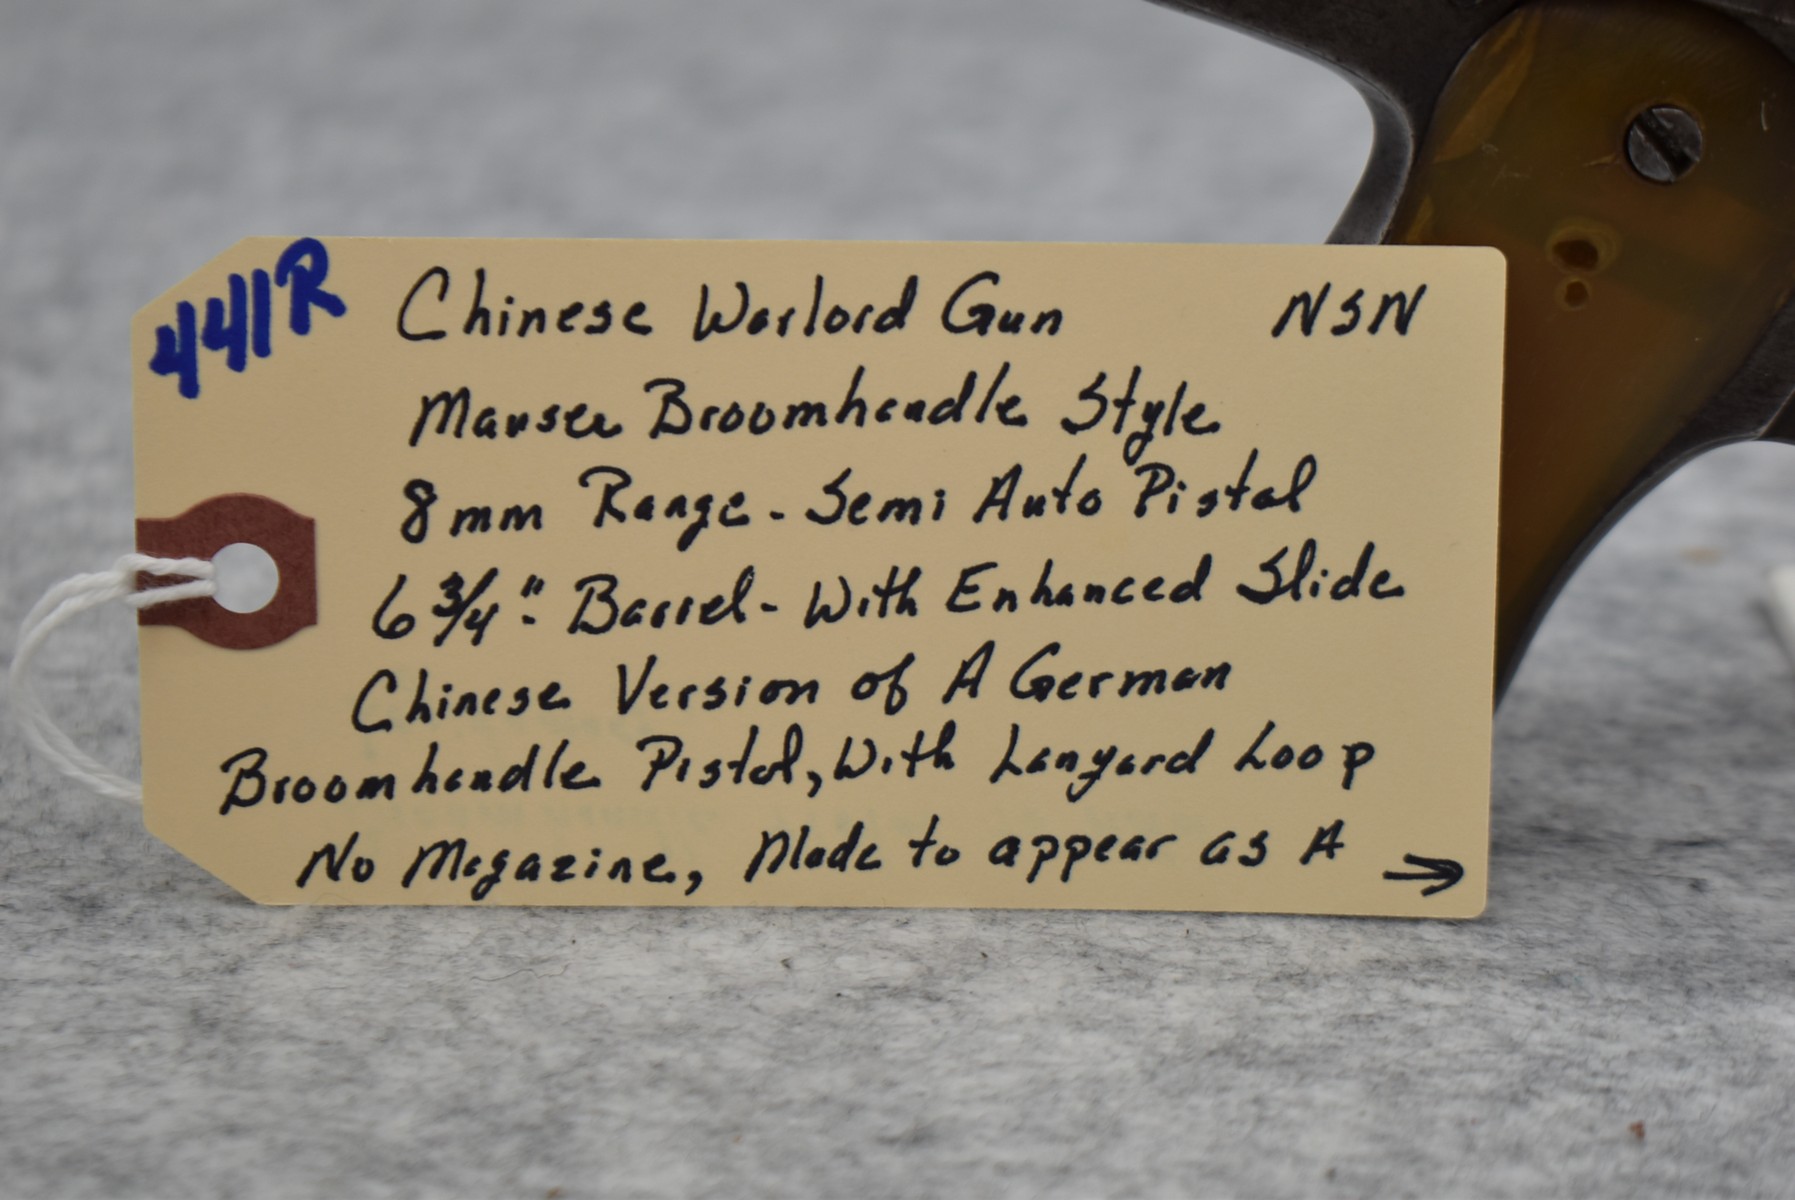 441R
Chinese Warlord Gun NSN
Mauser Broomhandle Style
8mm Range - Semi Auto Pistal
6 3/4" Barrel - With Enhanced Slide
Chinese Version of A German
Broomhandle Pistol, With Lanyard Loop
No Magazine, Made to appear as A →